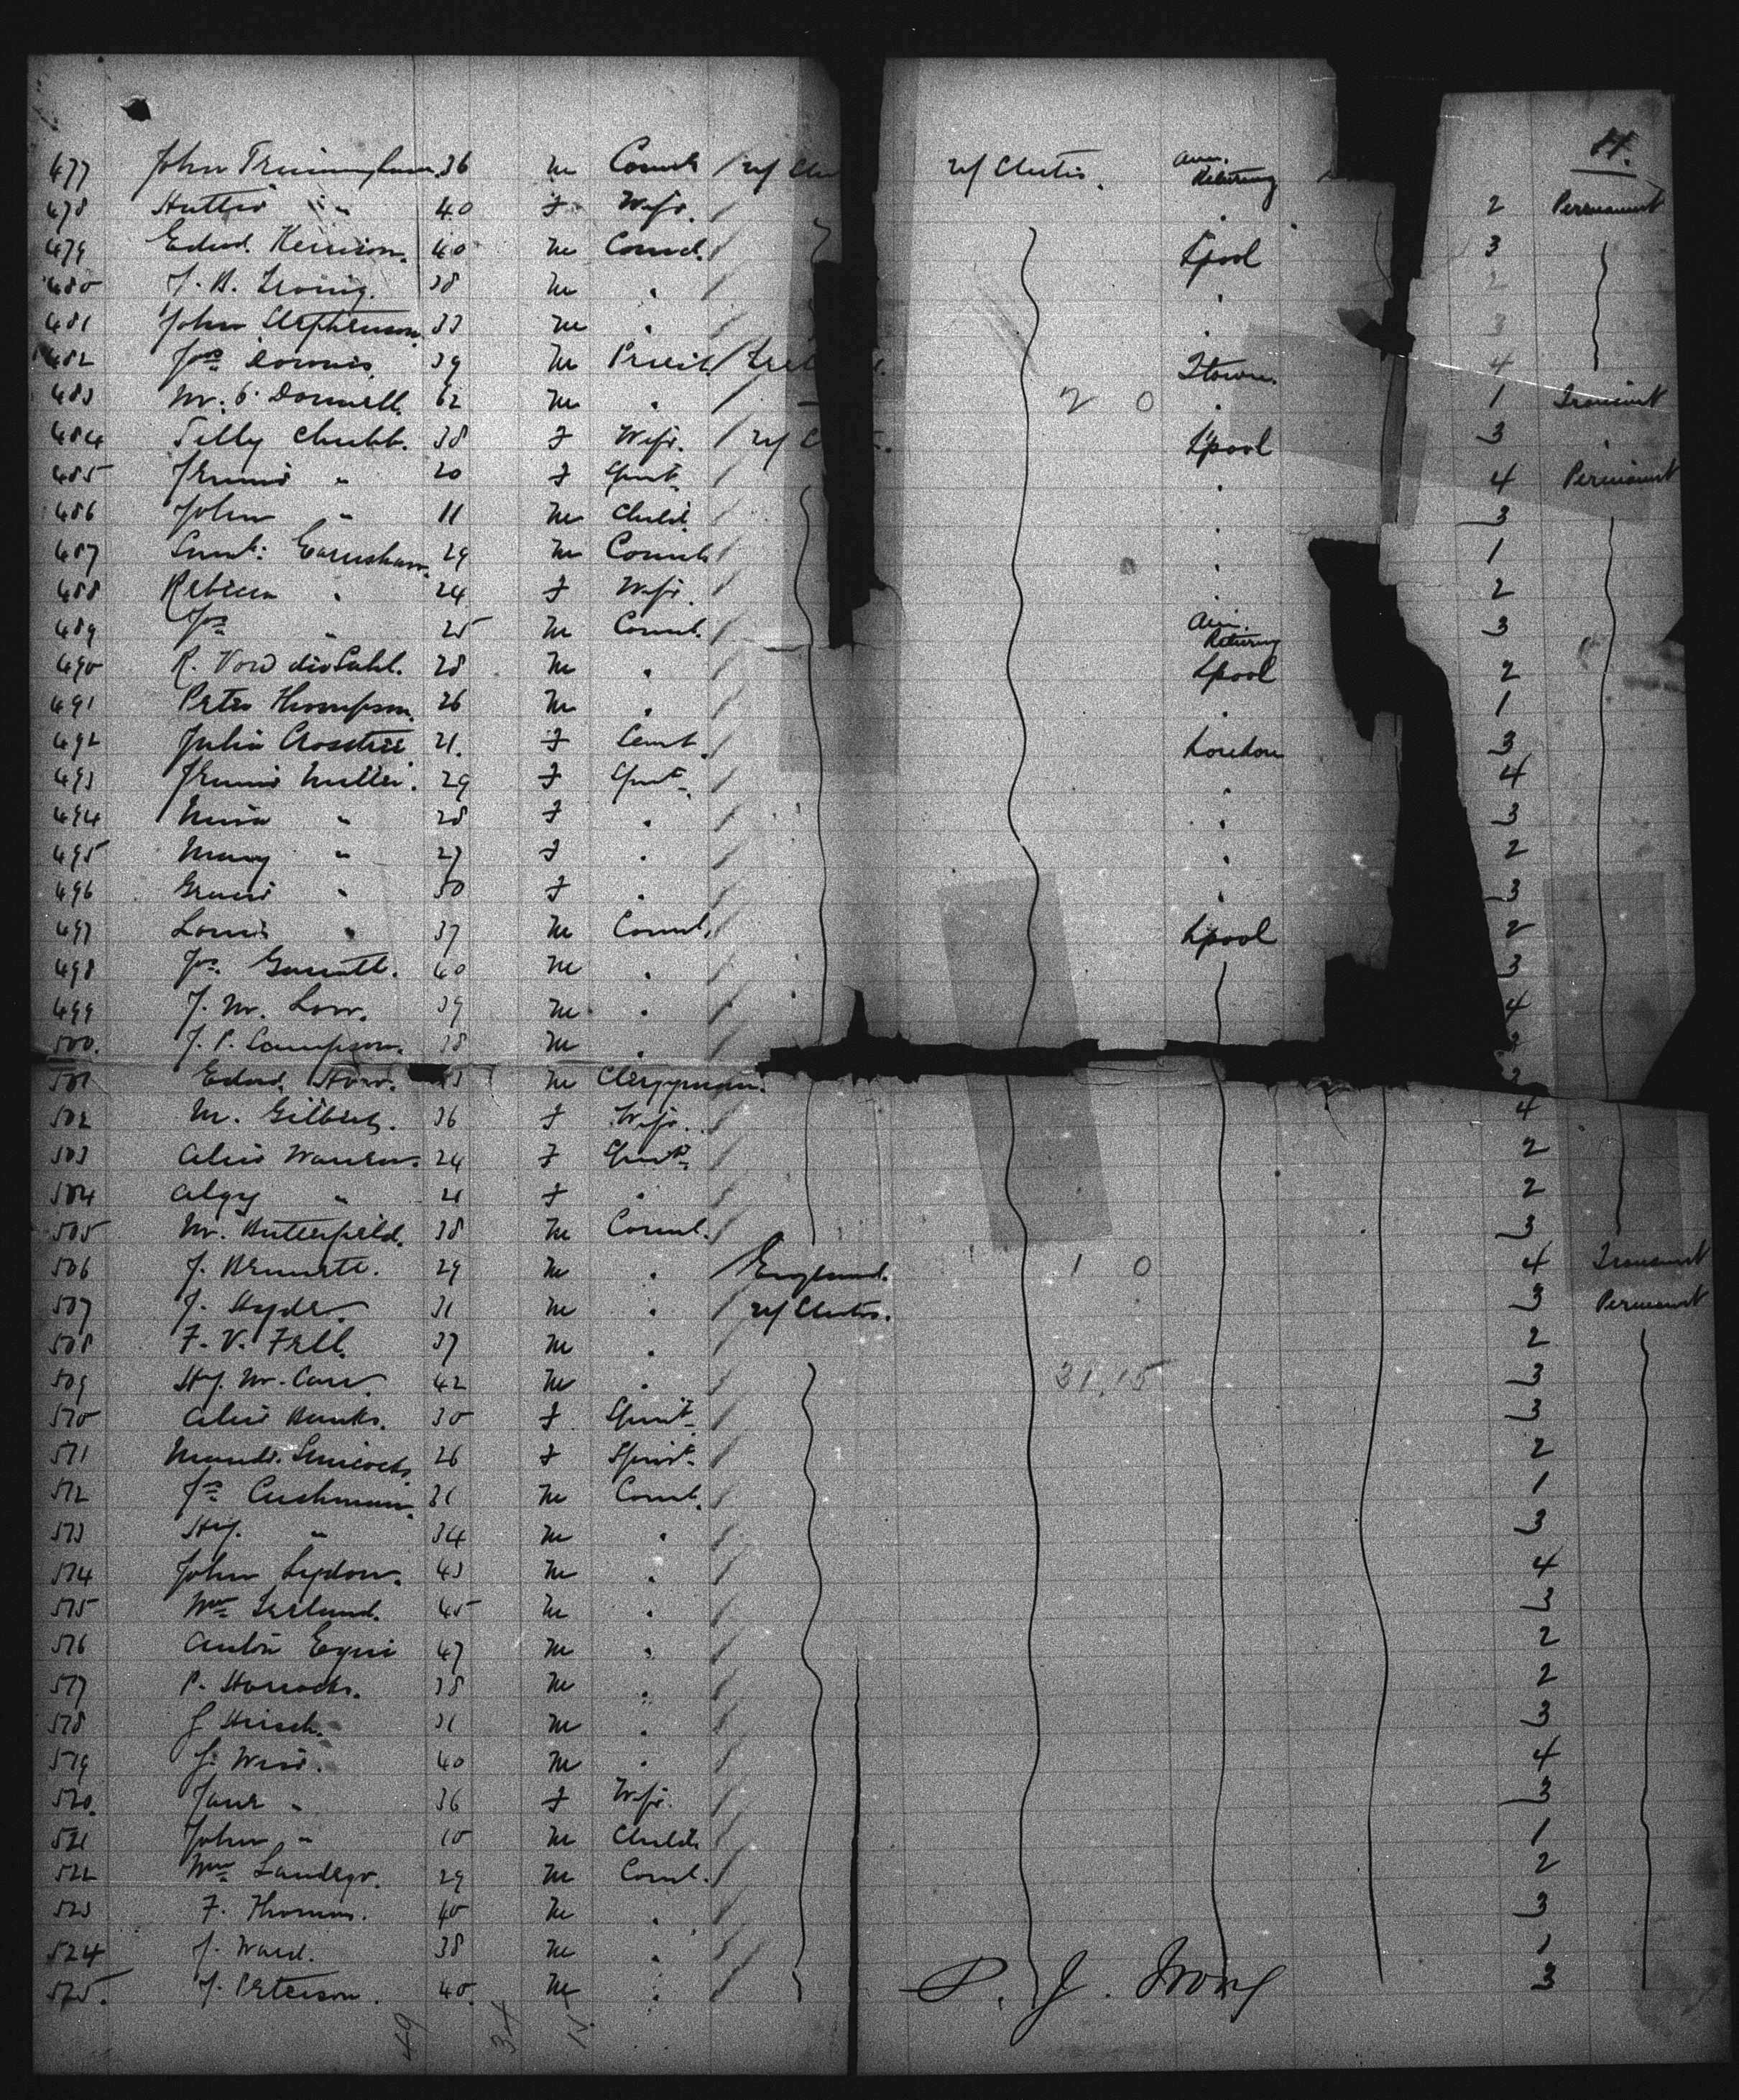 11.
477 John 36 M Comcl U/States. Am. Returning
478 Hattie " 40 F Wife. " 2 Permanent
479 Edwd. Kenison. 40 M Comcl. L'pool 3
480 J. B. Irving. 38 M " " 2
481 John Stephenson 33 M " " 3
482 Jos 39 M Priest Q'town. 4
483 M. O'Donnell. 62 M " 2 0 " 1 Transient
484 Tilly Chubb. 38 F Wife. L'pool 3 "
485 Jennie " 20 F Spinst. " 4 Permanent
486 John " 11 M Child. " 3
487 Saml: Earnshaw. 29 M Comcl " 1
488 Rebecca " 24 F Wife. " 2
489 Jos " 25 M Comcl. Am. Returning 3
490 R. Vondie Sahl. 28 M " L'pool 2
491 Peter Thompson. 26 M " " 1
492 Julia 21. F London 3
493 Jennie Miller. 29 F Spinst. " 4
494 " 28 F " " 3
495 Mary " 27 F " " 2
496 Gracie " 30 F " " 3
497 Louis " 37 M Comcl. L'pool 2
498 Jos. Garratt. 40 M " 3
499 J. M. Low. 39 M " 4
500. J. P. Sampson. 38 M "
501 Edwd. M Clergyman.
502 M. Gilbert. 36 F Wife. 4
503 Alice Warren. 24 F Spinst. 2
504 Algy " 21 F " 2
505 M. Butterfield. 38 M Comcl. 3
506 J. Bennett. 29 M " England. 1 0 4 Transient
507 J. Hyde. 31 M " U/States. 3 Permanent
508 F. V. Fell. 37 M " 2
509 Hy. M. Carr. 42 M " 31.15 3
510 Alice Banks. 30 F Spinst. 3
511 Maude Simcocks 26 F Spinst. 2
512 Js Cushman. 31 M Comcl. 1
513 Hy. " 34 M " 3
514 John Lydon. 43 M " 4
515 Wm Ireland. 45 M " 3
516 Anton Equi 47 M " 2
517 P. Horrocks. 38 M " 2
518 J Hirsch. 31 M " 3
519 J. Weir. 40 M " 4
520. Jane " 36 F Wife. 3
521 John " 10 M Child 1
522 Wm 29 M Comcl. 2
523 F. Thomas. 40 M " 3
524 J. Ward. 38 M " 1
525. J. Peterson. 40. M " P. J. Irving 3
49 34 15